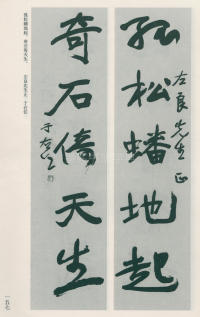 孤松蟠地起
左良先生正
奇石倚天生
于右任
一五七